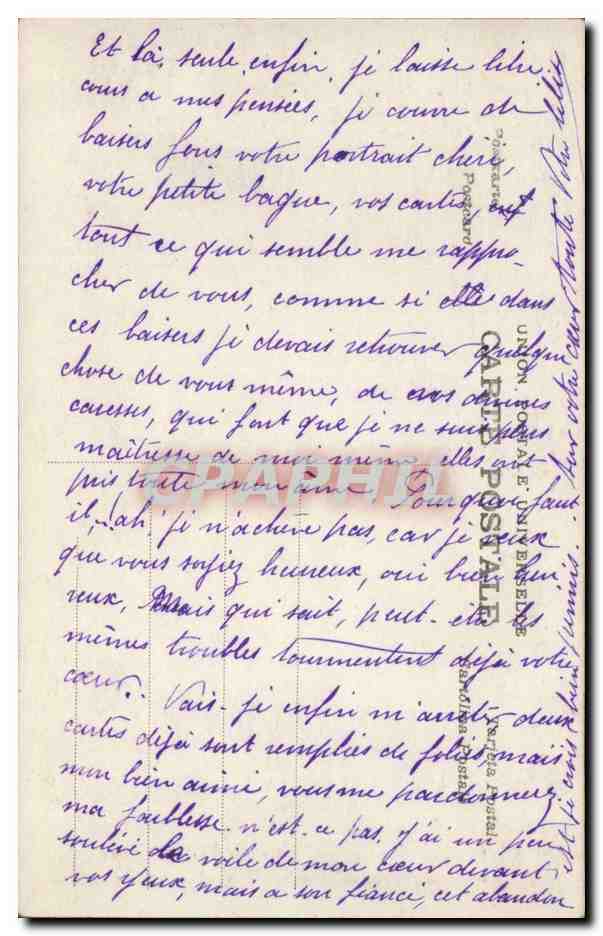 Et là, seule enfin, je laisse libre
cours a mes pensées, je couvre de
baisers fous votre portrait chéri,
votre petite bague, vos cartes, enf
tout ce qui semble me rappro-
cher de vous, comme si dans
ces baisers je devais retrouver quelque
chose de vous même, de vos divines
caresses, qui font que je ne suis plus
maîtresse de moi même, elles ont
pris toute mon âme. Pourquoi faut
il,... ah! je n'achève pas, car je veux
que vous soyiez heureux, oui bien heu
reux, Mais qui sait, peut-être les
mêmes troubles tourmentent déjà votre
cœur.. Vais-je enfin m'arrêter deux
cartes déjà sont remplies de folies, mais
mon bien aimé, vous me pardonnerez
ma faiblesse n'est-ce pas. J'ai un peu
soulevé le voile de mon cœur devant
vos yeux, mais a son fiancé, cet abandon
est je crois bien permis.. Sur votre cœur toute Votre
Postkarte
Postcard
UNION POSTALE UNIVERSELLE
CARTE POSTALE
Cartolina Postale
Tarjeta Postal
CPAPHIL